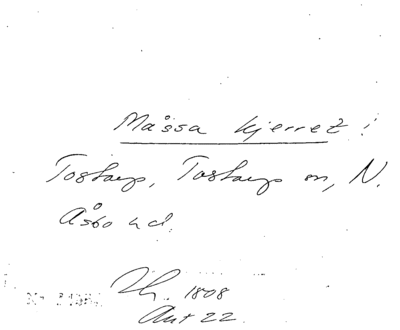 Måssa kjerret i
Tostarp, Tostarp sn, N.
Åsbo hd.
1808
Akt 22